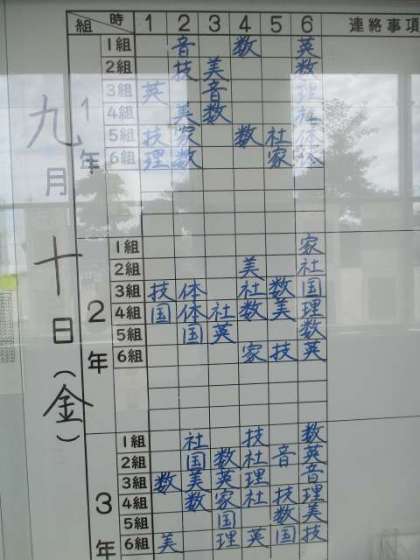 時 1 2 3 4 5 6 連絡事項
組
九月十日(金)
1年
1組 音 数 英
2組 技 美 数
3組 英 音 理
4組 英 数 社
5組 技 家 数 社 体
6組 理 数 家 体
2年
1組 家
2組 美 社
3組 技 体 社 数 国
4組 国 体 社 数 美 理
5組 国 英 数
6組 家 技 英
3年
1組 社 技 数
2組 国 数 社 音 英
3組 数 美 英 理 音
4組 数 家 社 技 理
5組 国 数 美
6組 美 理 英 国 技